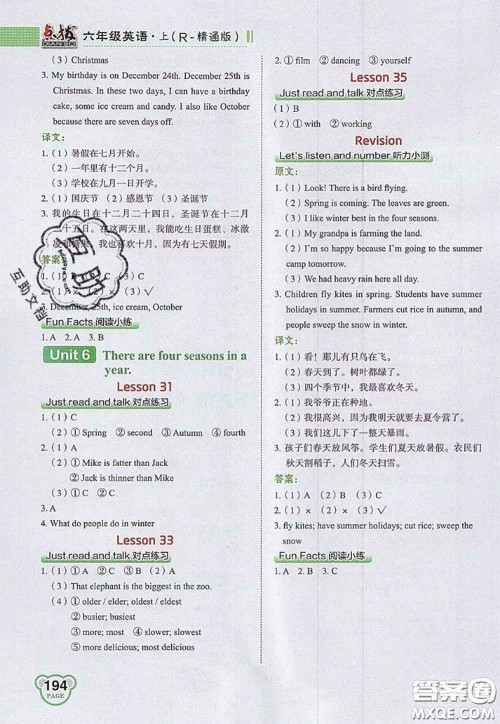 点拨
DIANBO
六年级英语·上(R-精通版)
(3) Christmas
3. My birthday is on December 24th. December 25th is
Christmas. In these two days, I can have a birthday
cake, some ice cream and candy. I also like October
because there are seven days off.
译文:
1. (1) 暑假在七月开始。
(2) 一年里有十二个月。
(3) 学校在九月一日开学。
2. (1) 国庆节 (2) 感恩节 (3) 圣诞节
3. 我的生日在十二月二十四日。圣诞节在十二月
二十五日。在这两天里,我能吃生日蛋糕、冰激
凌和糖果。我也喜欢十月,因为有七天假期。
答案:
1. (1) B (2) C (3) C
2. (1) × (2) × (3) ✓
3. December 25th, ice cream, October
Fun Facts 阅读小练
1. A 2. A 3. B
Unit 6 There are four seasons in a
year.
Lesson 31
Just read and talk 对点练习
1. (1) C
(2) ① Spring ② second ③ Autumn ④ fourth
2. (1) A
(2) ① Mike is fatter than Jack
② Jack is thinner than Mike
3. A
4. What do people do in winter
Lesson 33
Just read and talk 对点练习
1. (1) ① A ② C ③ B (2) A
(3) That elephant is the biggest in the zoo.
(4) ① older / elder; oldest / eldest
② busier; busiest
③ more; most ④ slower; slowest
⑤ more difficult; most difficult
194
PAGE
2. ① film ② dancing ③ yourself
Lesson 35
Just read and talk 对点练习
(1) B
(2) ① with ② working
Revision
Let's listen and number 听力小测
原文:
1. (1) Look! There is a bird flying.
(2) Spring is coming. The leaves are green.
(3) I like winter best in the four seasons.
2. (1) My grandpa is farming the land.
(2) I'm so happy because I'm going to the summer
camp tomorrow.
(3) We had heavy rain here all day.
3. Children fly kites in spring. Students have summer
holidays in summer. Farmers cut rice in autumn, and
people sweep the snow in winter.
译文:
1. (1) 看!那儿有只鸟在飞。
(2) 春天到了。树叶都绿了。
(3) 四个季节中,我最喜欢冬天。
2. (1) 我爷爷正在种地。
(2) 我很高兴,因为我明天就要去夏令营了。
(3) 我们这儿下了一整天的暴雨。
3. 孩子们春天放风筝。学生们夏天放暑假。农民们
秋天割稻子,人们冬天扫雪。
答案:
1. (1) A (2) B (3) C
2. (1) × (2) ✓ (3) ×
3. fly kites; have summer holidays; cut rice; sweep the
snow
Fun Facts 阅读小练
1. A 2. B 3. C
互助
互助文档
答案圈
MXQE.COM